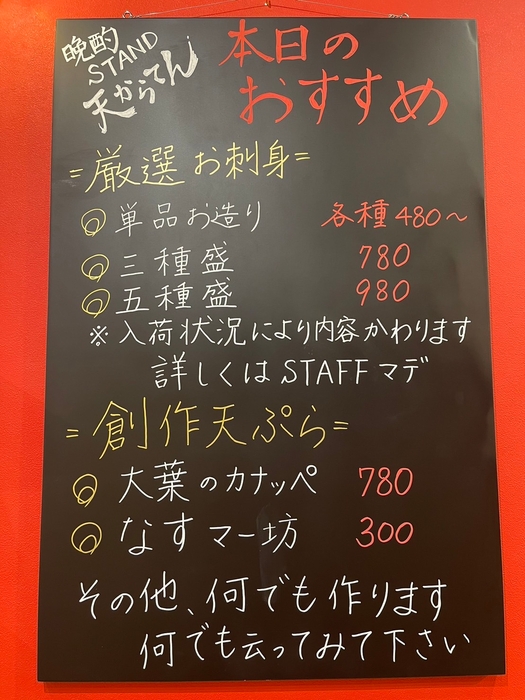 晩酌
STAND
天からてん
本日の
おすすめ
=厳選お刺身=
◎単品お造り 各種480〜
◎三種盛 780
◎五種盛 980
※入荷状況により内容かわります
詳しくはSTAFFマデ
=創作天ぷら=
◎大葉のカナッペ 780
◎なすマー坊 300
その他、何でも作ります
何でも云ってみて下さい